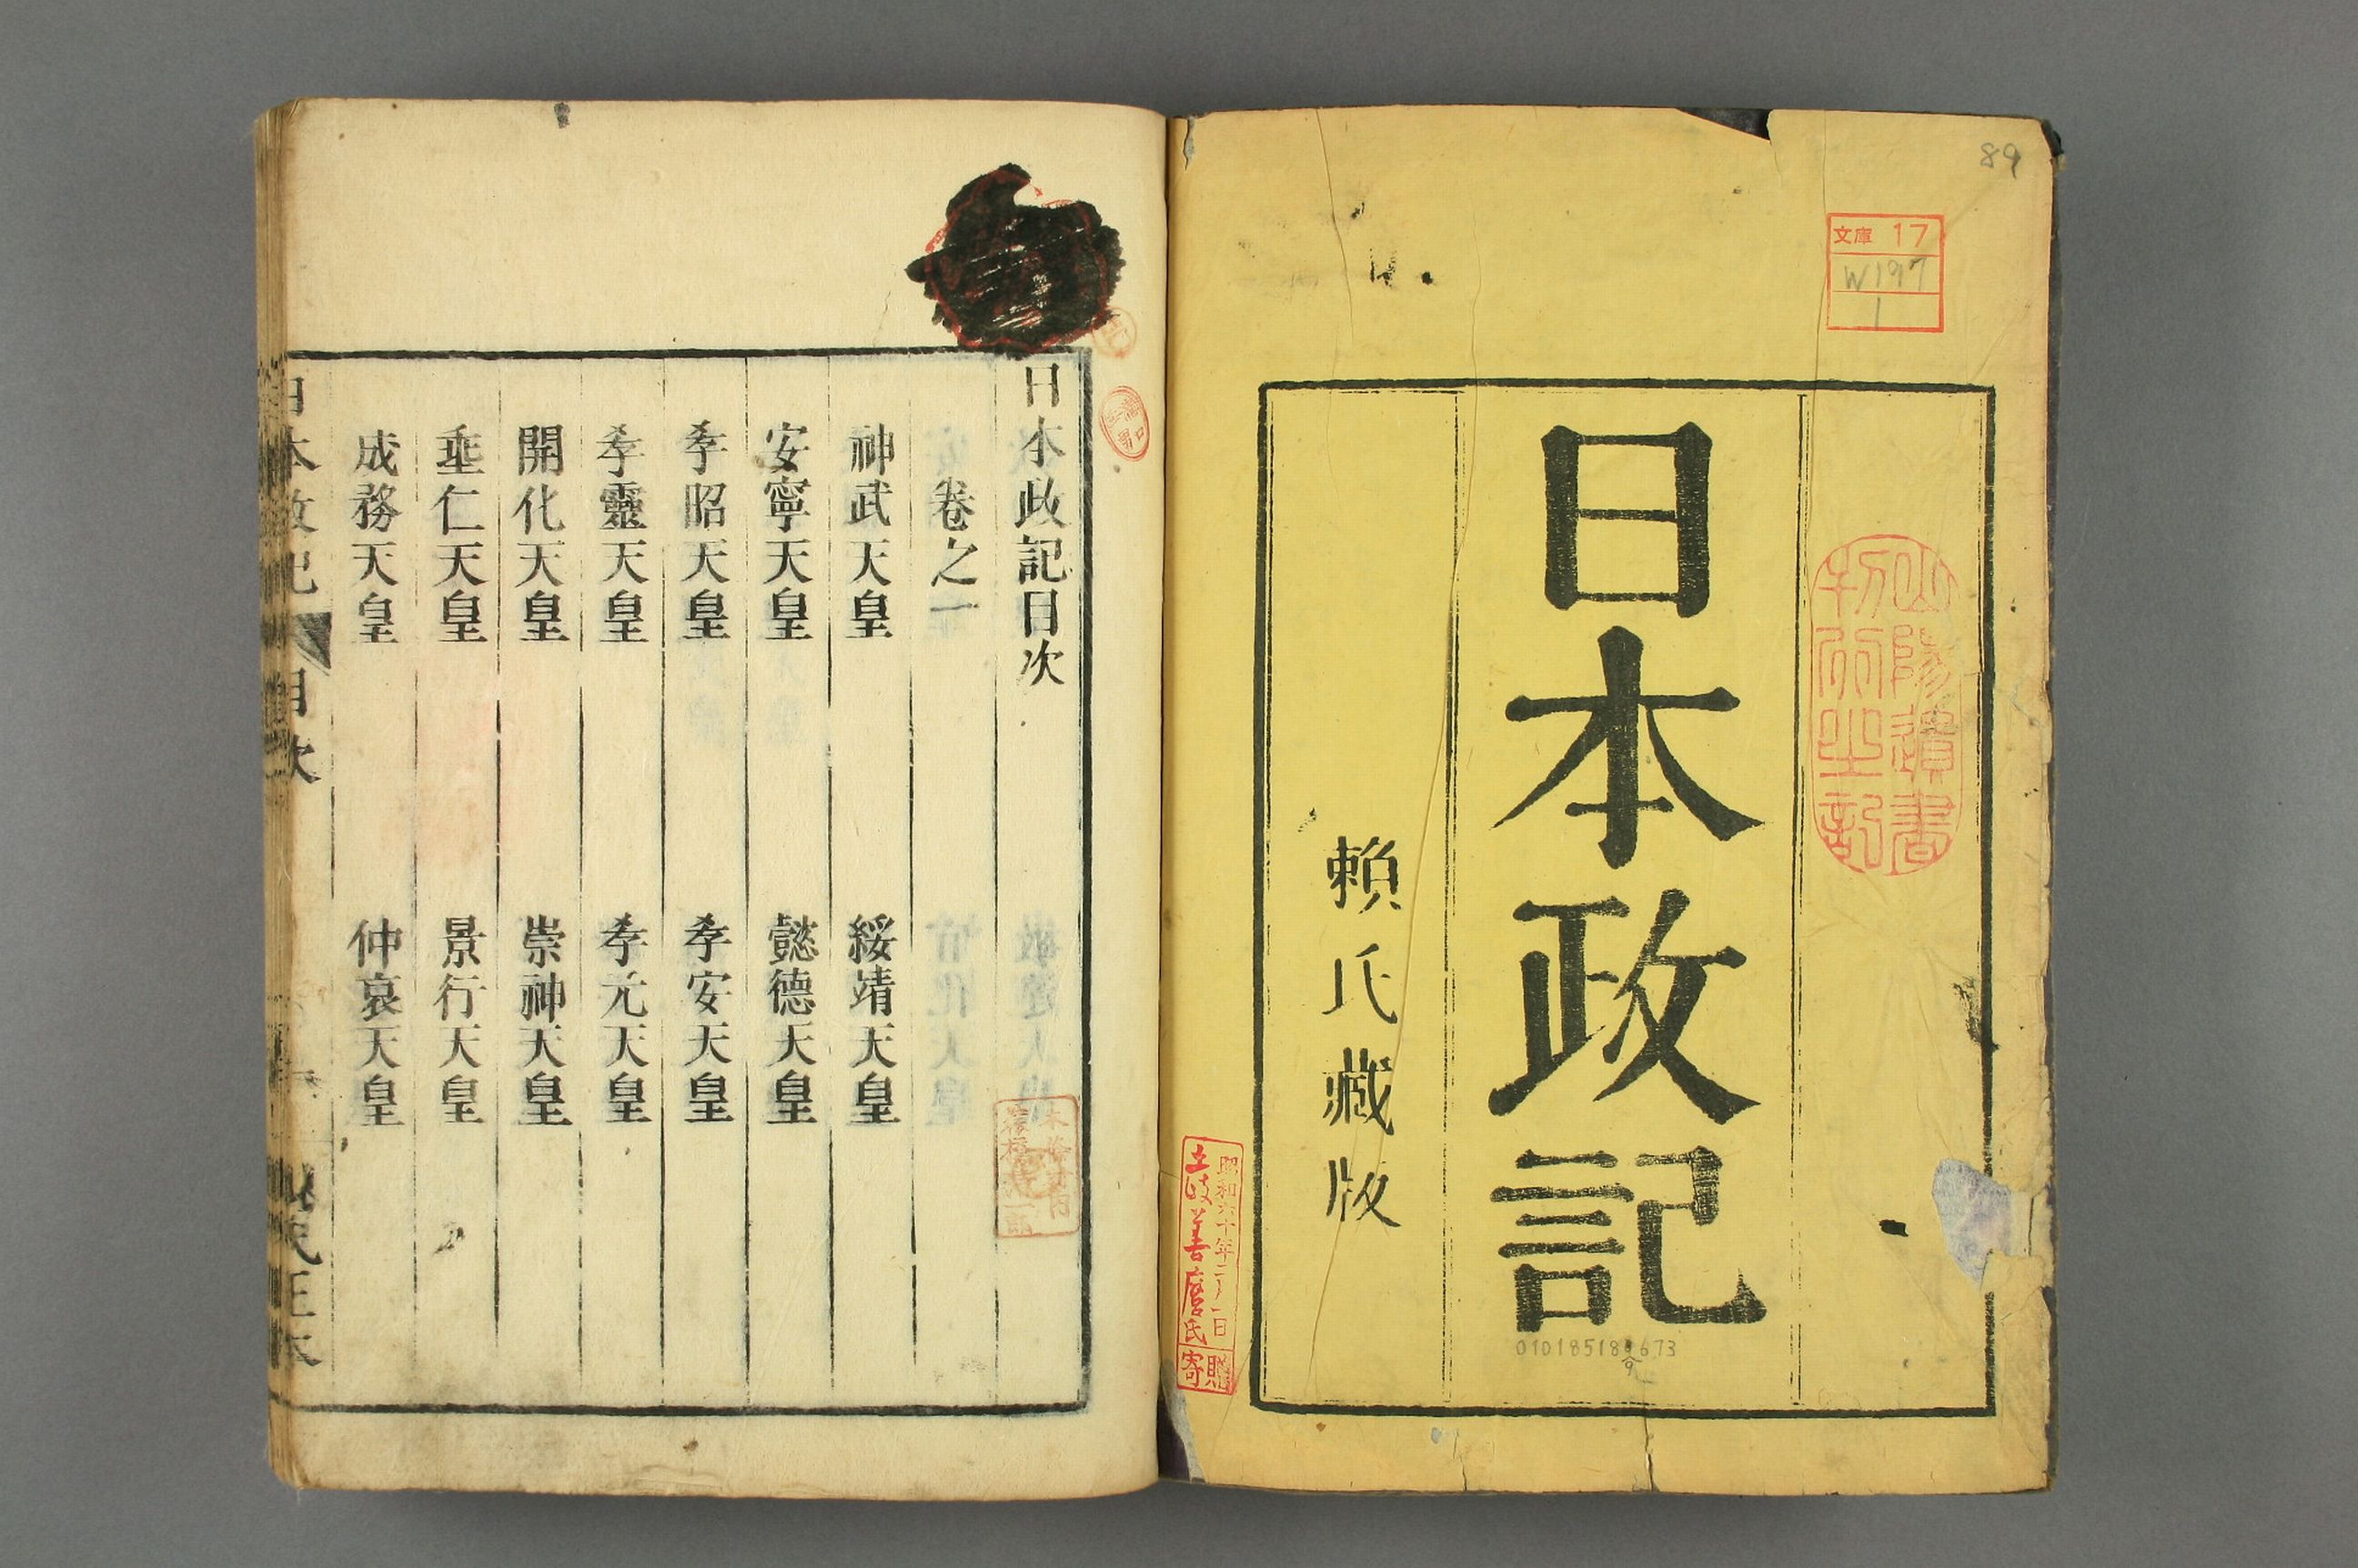 89
文庫 17
W197
1
山陽遺書
日本政記
010185188673
賴氏藏版
昭和六十年二月一日
土岐善麿氏
寄贈
日本政記目次
卷之一
神武天皇 綏靖天皇
安寧天皇 懿德天皇
孝昭天皇 孝安天皇
孝靈天皇 孝元天皇
開化天皇 崇神天皇
垂仁天皇 景行天皇
成務天皇 仲哀天皇
日本政記 目次